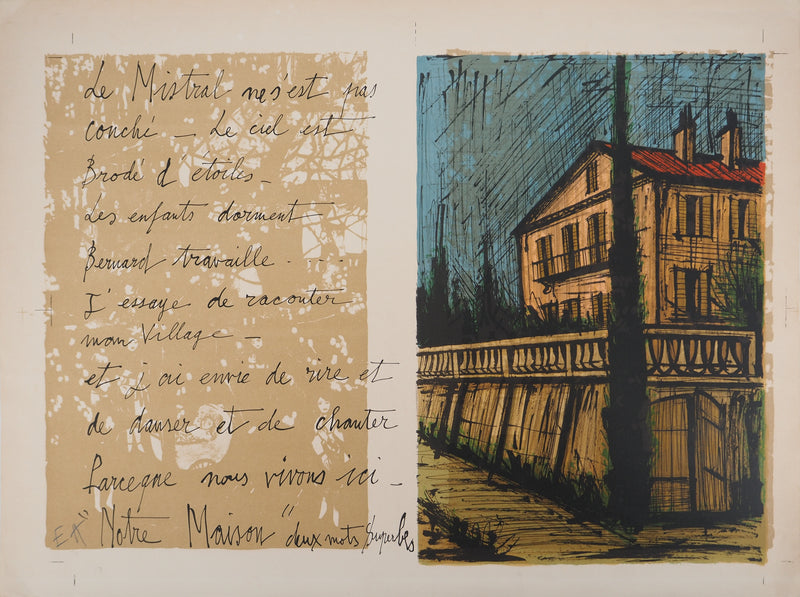 Le Mistral ne s'est pas
couché — Le ciel est
Brodé d'étoiles —
Les enfants dorment
Bernard travaille - - - -
J'essaye de raconter
mon Village —
et j'ai envie de rire et
de danser et de chanter
Parceque nous vivons ici —
EA "Notre Maison" deux mots Superbes